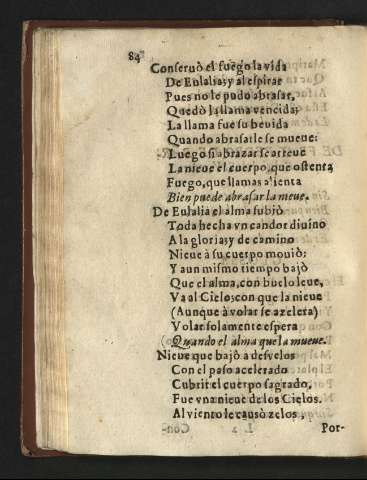 84
Conseruò el fuego la vida
De Eulalia; y al espirar
Pues no le pudo abrasar,
Quedò la llama vencida;
La llama fue su beuida
Quando abrasarle se mueue:
Luego si abrazar se atreue
La nieue el cuerpo, que ostenta
Fuego, que llamas alienta
Bien puede abrasar la nieue.
De Eulalia el alma subiò
Toda hecha vn candor diuino
A la gloria; y de camino
Nieue à su cuerpo mouiò:
Y aun mismo tiempo bajò
Que el alma, con buelo leue,
Va al Cielo; con que la nieue
(Aunque à volar se azelera)
Volar solamente espera
Quando el alma que la mueue.
Nieue que bajò a desvelos
Con el paso acelerado
Cubrir el cuerpo sagrado,
Fue vna nieue de los Cielos.
Al viento le causò zelos,
Por-